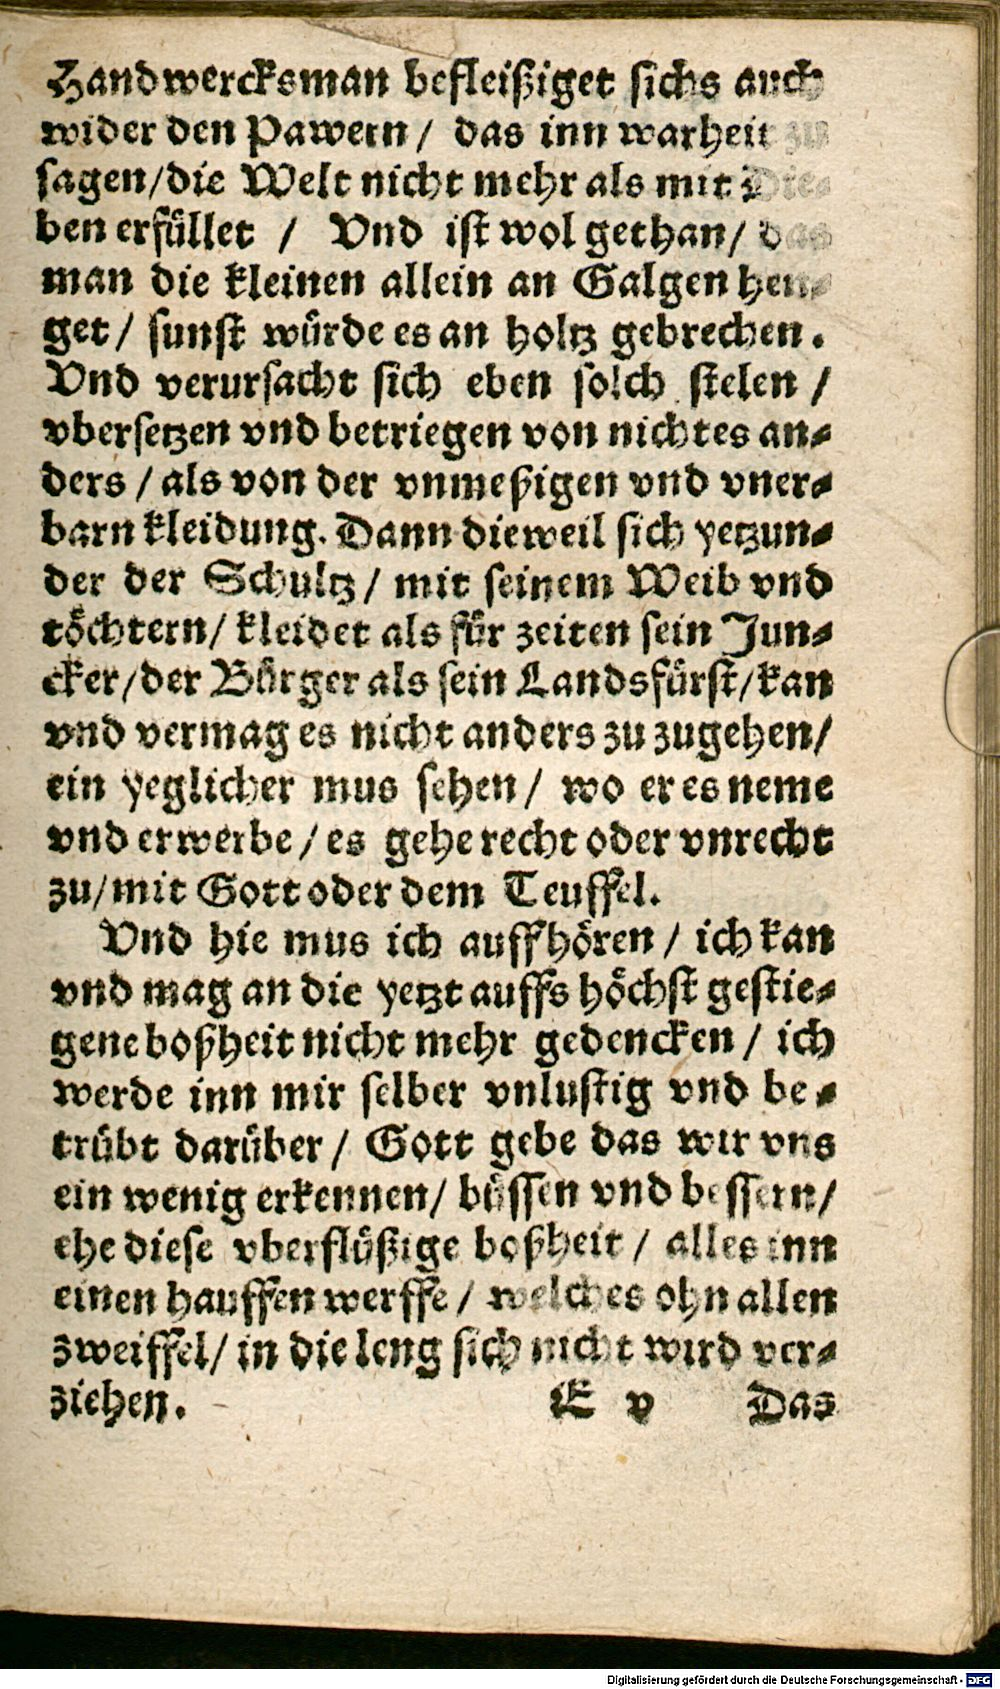 Handwercksman befleißiget sichs auch
wider den Pawern / das inn warheit zu
sagen/die Welt nicht mehr als mit Die-
ben erfüllet / Vnd ist wol gethan/ das
man die kleinen allein an Galgen hen-
get / sunst würde es an holtz gebrechen.
Vnd verursacht sich eben solch stelen /
vbersetzen vnd betriegen von nichtes an-
ders / als von der vnmeßigen vnd vner-
barn kleidung. Dann dieweil sich yetzun-
der der Schultz / mit seinem Weib vnd
töchtern/ kleidet als für zeiten sein Jun-
cker/der Bürger als sein Landsfürst/kan
vnd vermag es nicht anders zu zugehen/
ein yeglicher mus sehen / wo er es neme
vnd erwerbe / es gehe recht oder vnrecht
zu/mit Gott oder dem Teuffel.
Vnd hie mus ich auffhören / ich kan
vnd mag an die yetzt auffs höchst gestie-
gene boßheit nicht mehr gedencken / ich
werde inn mir selber vnlustig vnd be-
trübt darüber / Gott gebe das wir vns
ein wenig erkennen/ büssen vnd bessern/
ehe diese vberflüßige boßheit / alles inn
einen hauffen werffe / welches ohn allen
zweiffel/ in die leng sich nicht wird ver-
ziehen. E v Das
Digitalisierung gefördert durch die Deutsche Forschungsgemeinschaft - DFG